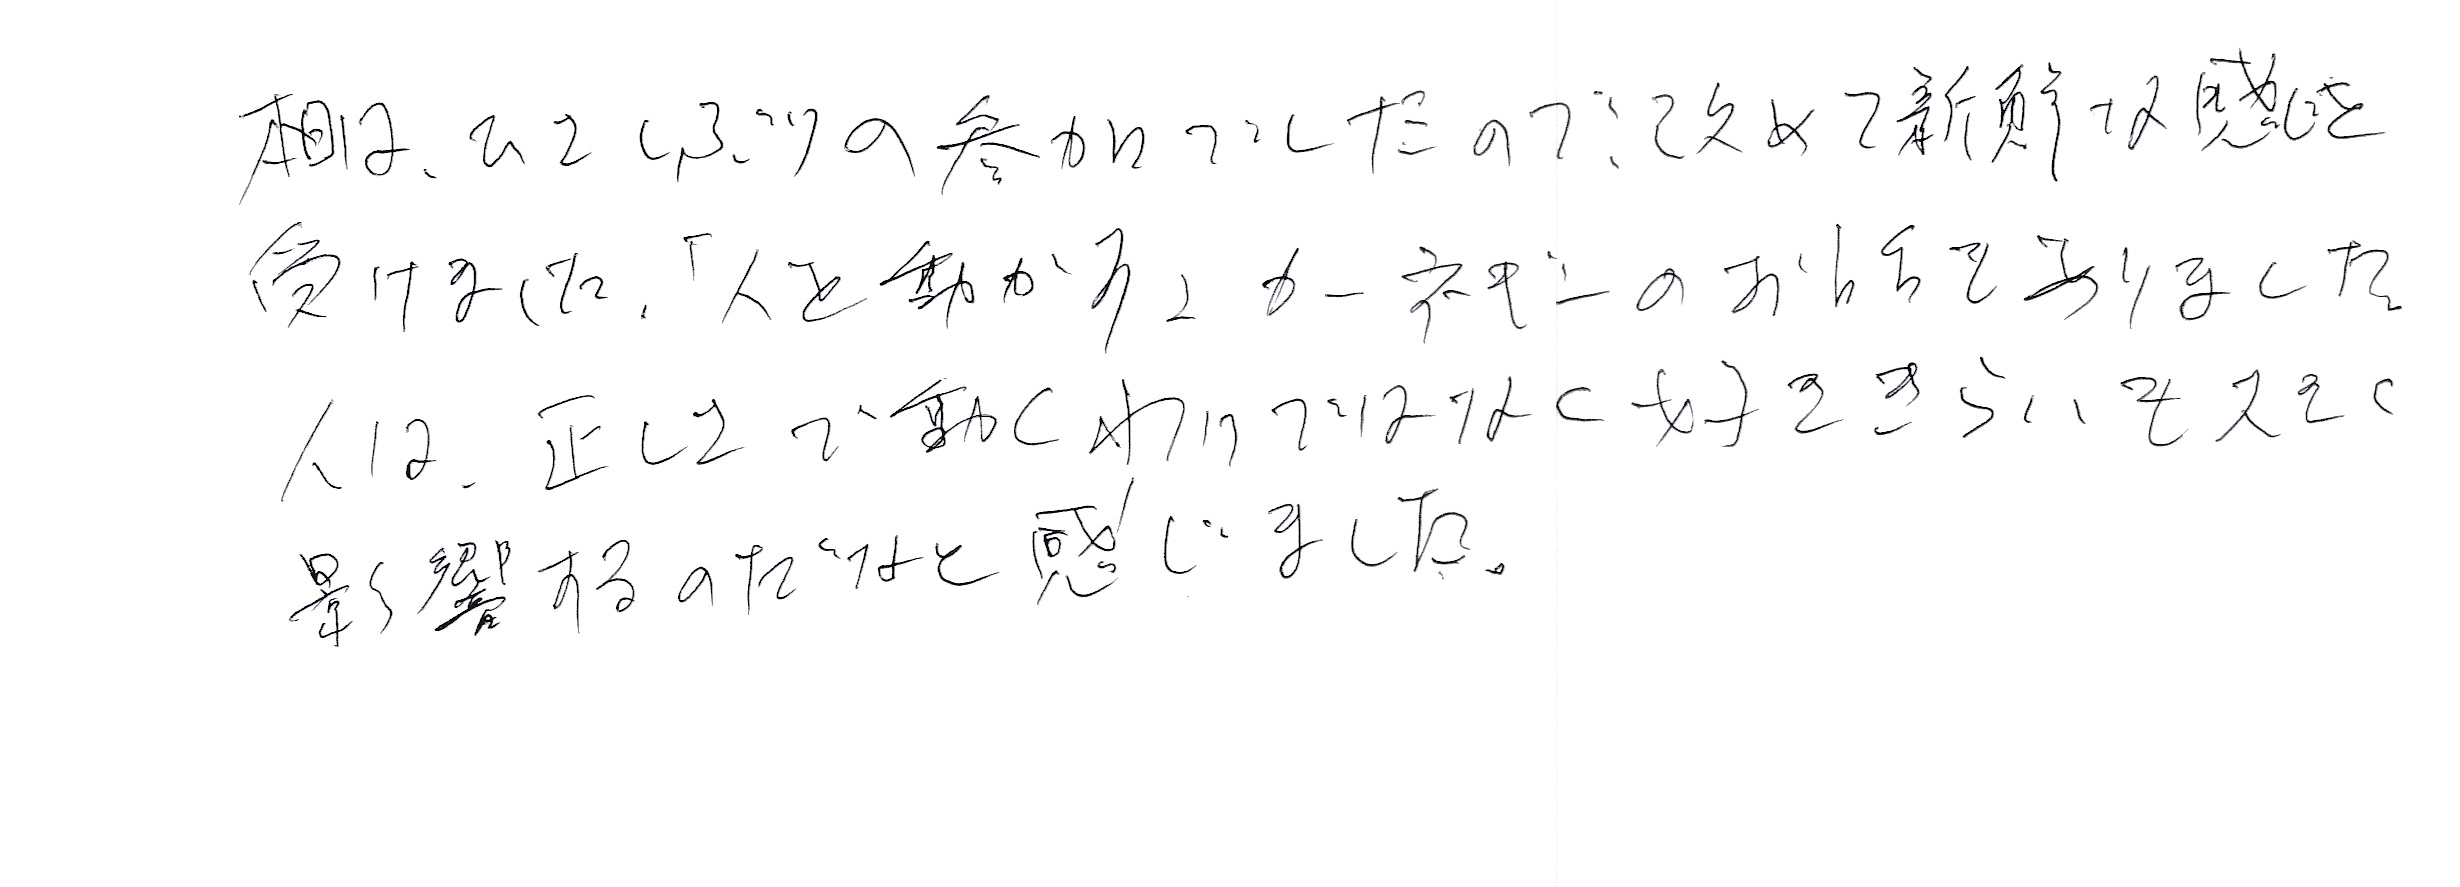 本日は、ひさしぶりの参加でしたので、改めて新鮮な感じを
受けました。「人を動かす」カーネギーのお話もありました
人は、正しさで動くわけではなく好ききらいも大きく
影響するのだなと感じました。